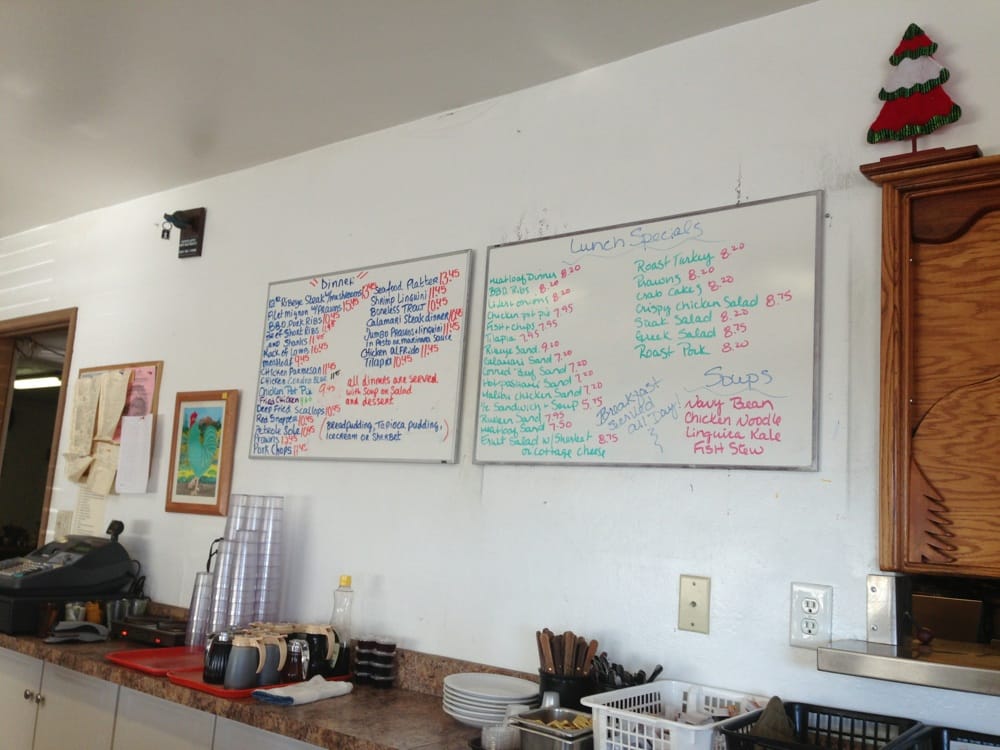 "Dinner"
Ribeye Steak w/mushrooms 13.45
Filet mignon w/Prawns 15.45
BBQ Pork Ribs 10.45
Beef Short Ribs 11.45
Lamb Shanks 11.45
Rack of Lamb 16.45
meatloaf 9.45
Chicken Parmesan 11.45
Chicken Cordon Blue 11.45
Chicken Pot Pie 9.45
Fried Chicken
Deep Fried Scallops 10.45
Red Snapper 10.45
Petrale Sole 10.45
Prawns 13.45
Pork Chops 11.45
Seafood Platter 13.45
Shrimp Linguini 11.45
Boneless Trout 10.45
Calamari Steak dinner 10.45
Jumbo Prawns & linguini 11.45
in Pesto or marinara sauce
Chicken alfrido 11.45
Tilapia 10.45
all dinners are served
with Soup or Salad
and dessert
(Breadpudding, Tapioca pudding,
Icecream or Sherbet)
Lunch Specials
Meatloaf Dinner 8.20
BBQ Ribs 8.20
Liver onions 8.20
Chicken pot pie 7.95
Fish & chips 7.95
Tilapia 7.95
Ribeye Sand 9.20
Calamari Sand 7.20
Corned Beef Sand 7.20
Hot-pastrami Sand 7.20
Malibu chicken Sand 7.20
½ Sandwich - Soup 5.75
Rueben Sand 7.95
Meatloaf Sand 7.50
Fruit Salad w/ Sherbet 8.75
or cottage cheese
Roast Turkey 8.20
Prawns 8.20
Crab Cakes 8.20
Crispy chicken Salad 8.75
Steak Salad 8.20
Greek Salad 8.75
Roast Pork 8.20
Breakfast
Served
all Day!
Soups
Navy Bean
Chicken Noodle
Linguica Kale
Fish Stew